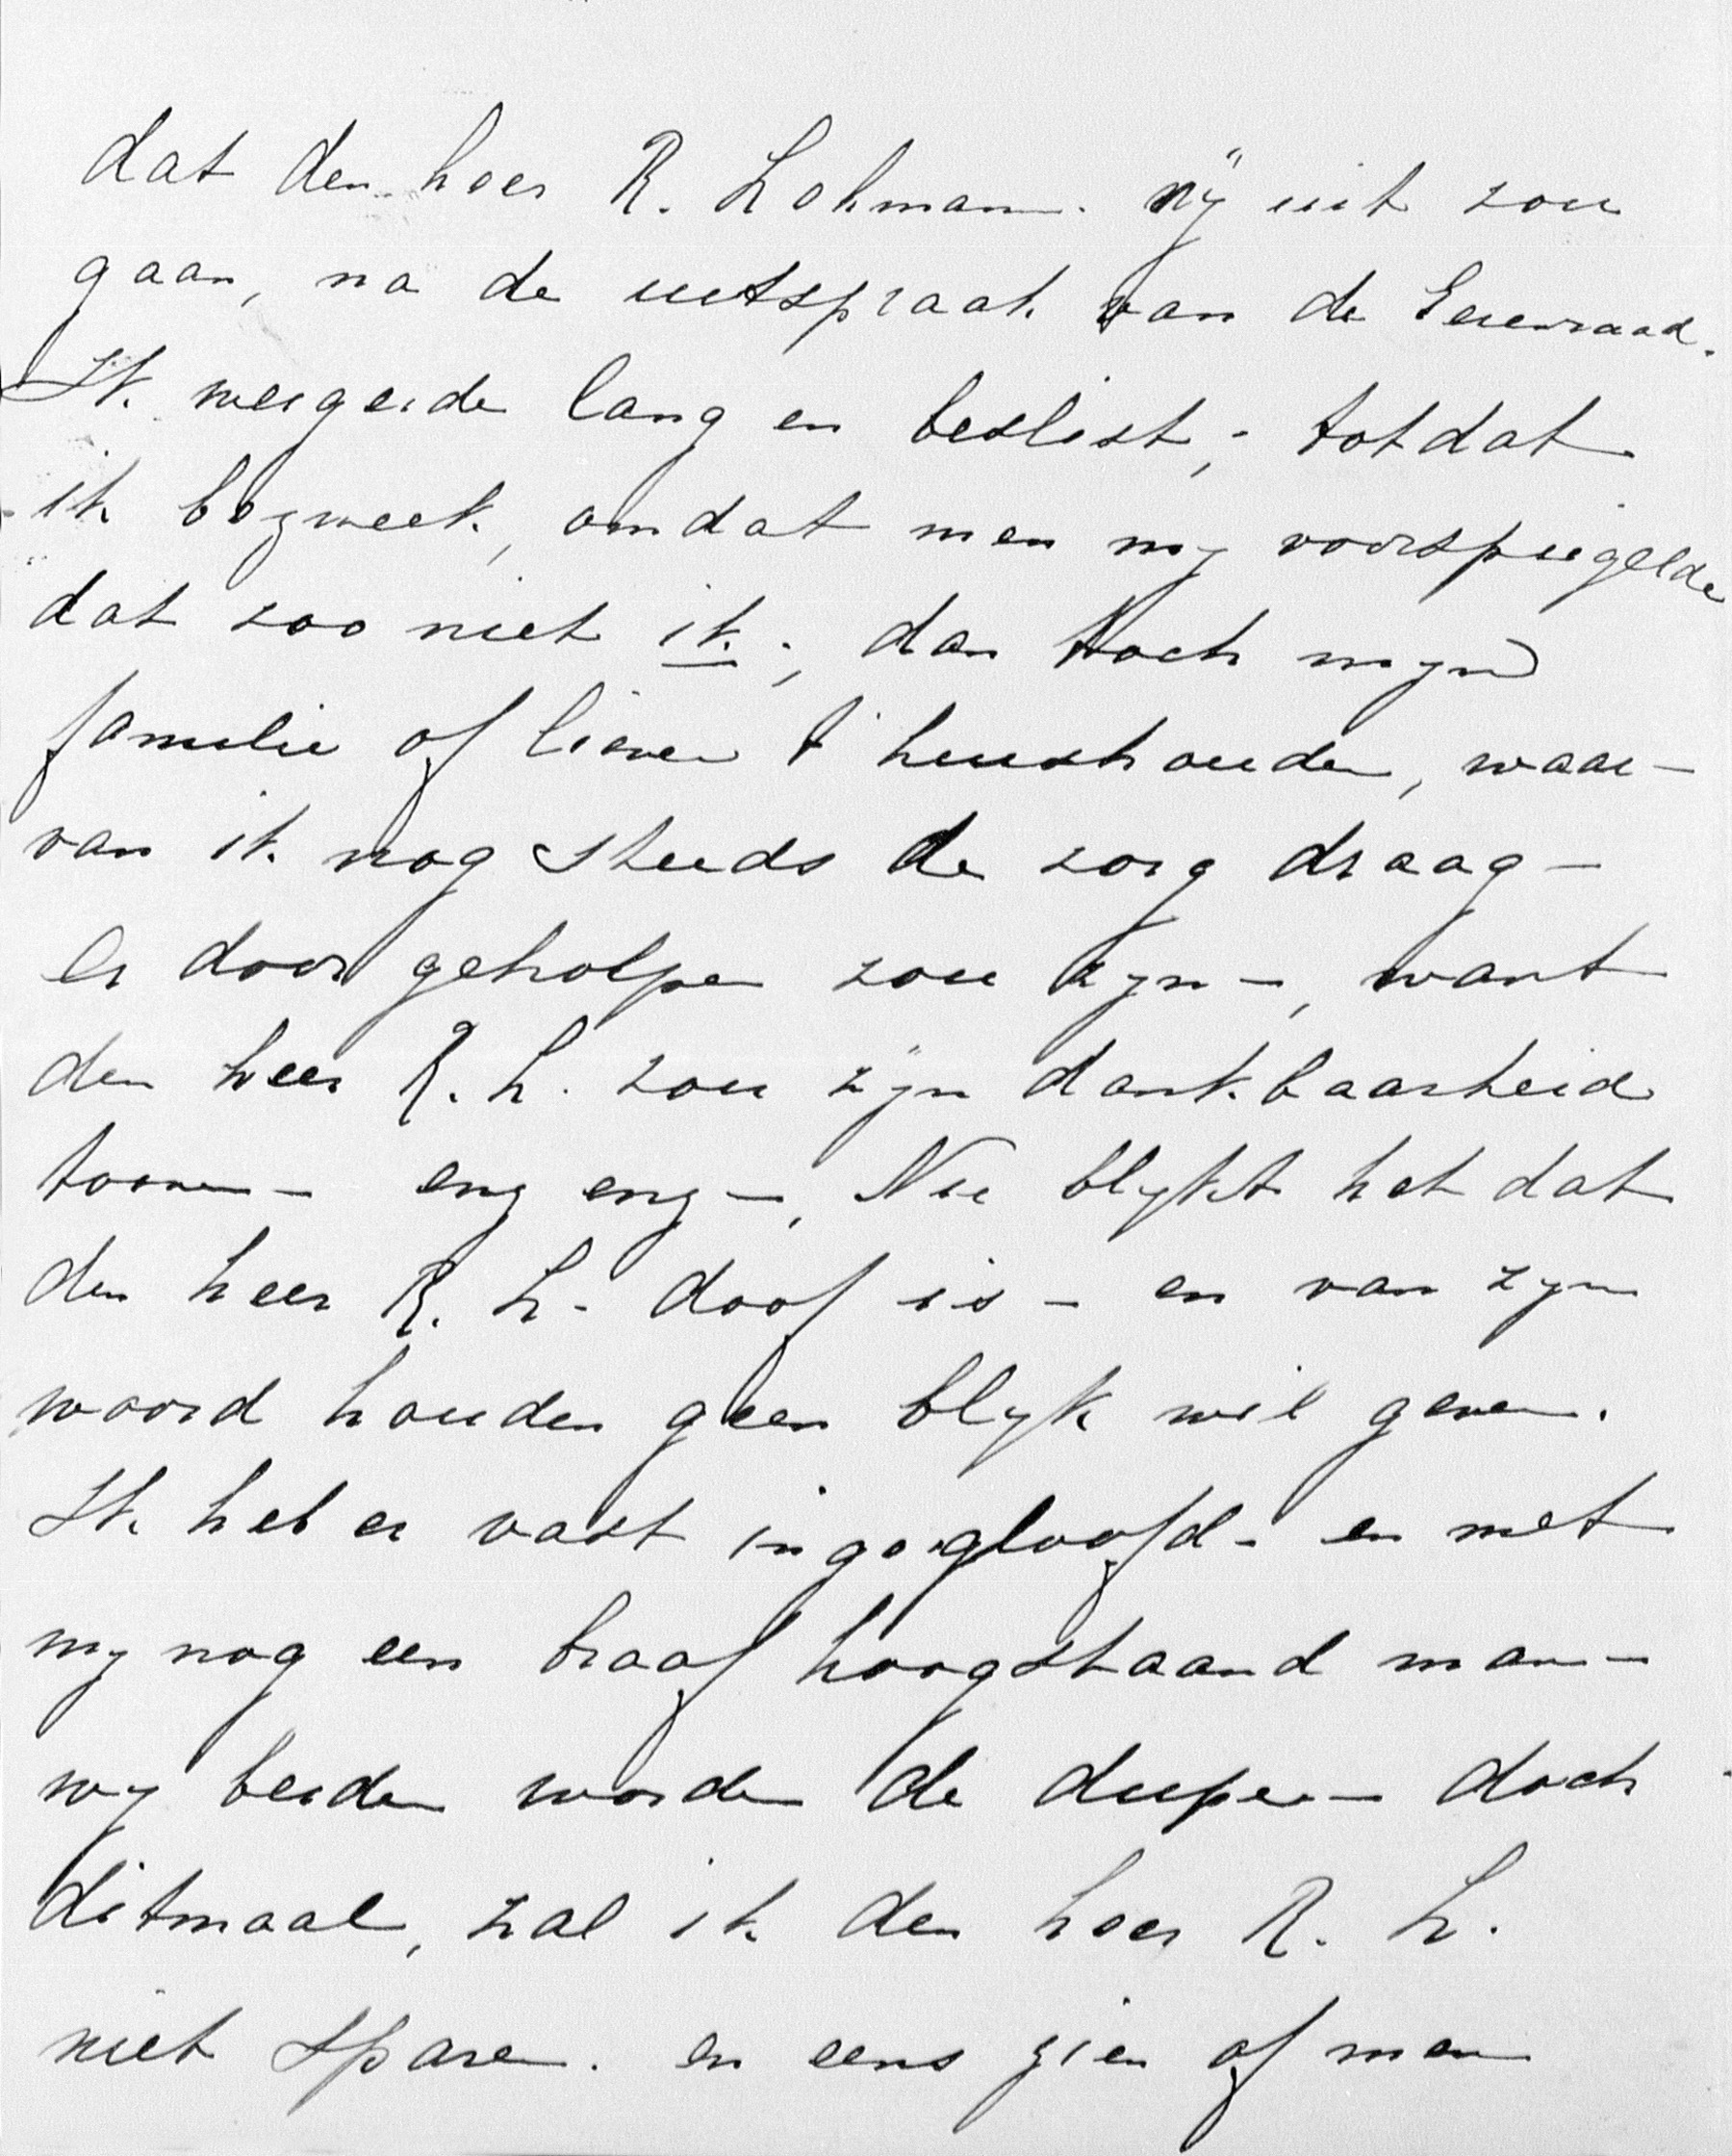 dat den heer R. Lohman. vrÿ uit zou
gaan, na de uitspraak van de Eereraad.
Ik weigerde lang en beslist; totdat
ik bezweek, omdat men mij voorspiegelde
dat zoo niet ik; dan toch mijn
familie of liever 't huishouden, waar-
van ik nog steeds de zorg draag -
er door geholpen zou zijn -, want
den heer R. L. zou zijn dankbaarheid
toonen - enz enz -, Nu blijkt het dat
den heer R. L. doof is - en van zijn
woord houden geen blijk wil geven.
Ik heb er vast in gegloofd - en met
mij nog een braaf hoogstaand man -
wij beiden worden de dupe - doch
ditmaal, zal ik den heer R. L.
niet sparen. en eens zien of men